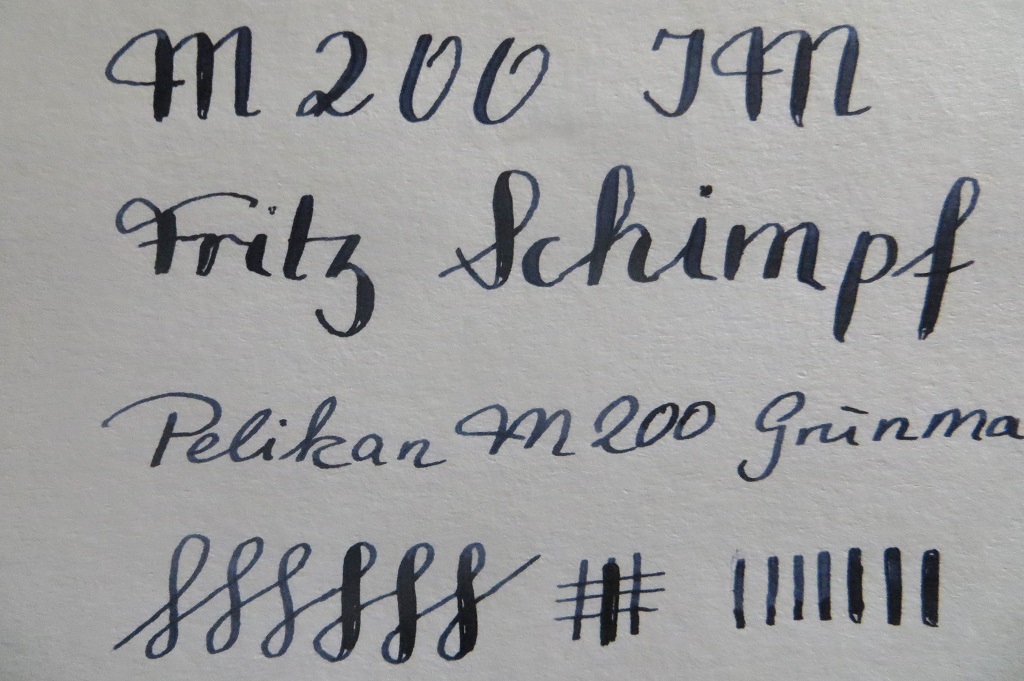 M 200 IM
Fritz Schimpf
Pelikan M200 Grünma